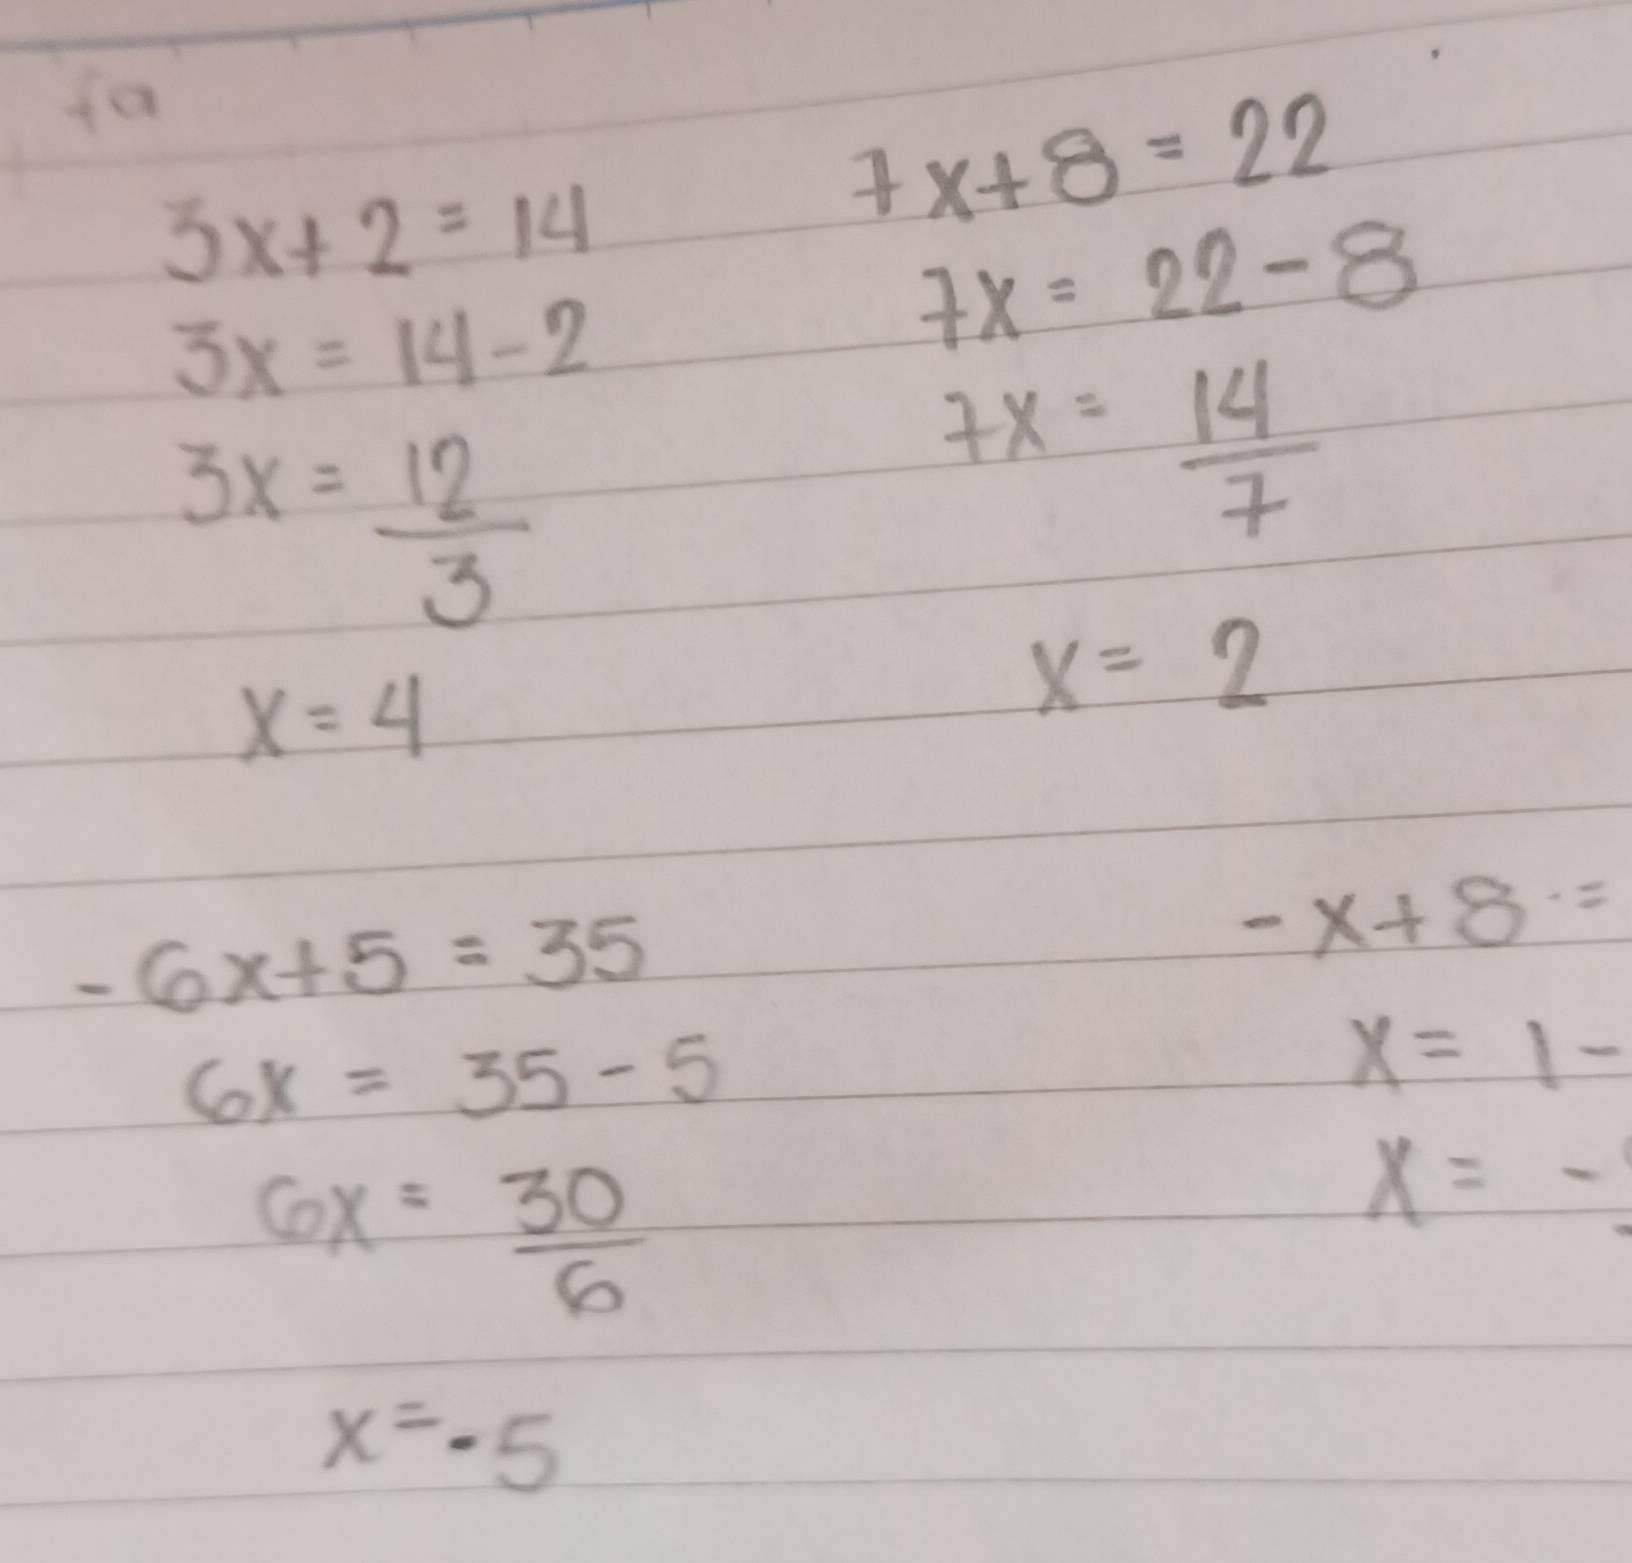 fa
3x+2=14
3x = 14-2
3x = 12/3
x=4
7x+8=22
7x = 22-8
7x = 14/7
x= 2
-6x+5 = 35
6x = 35-5
6x = 30/6
x=-5
-x+8 =
x= 1-
x= -